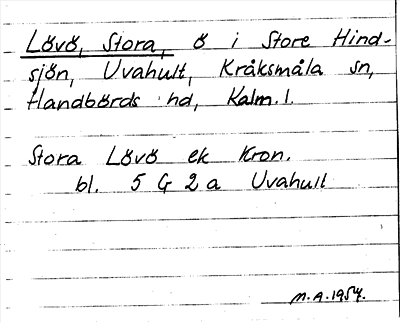 Lövö, Stora, ö i Store Hind-
sjön, Uvahult, Kråksmåla sn,
Handbörds hd, Kalm.l.
Stora Lövö ek Kron.
bl. 5 G 2 a Uvahult
M.A.1954.